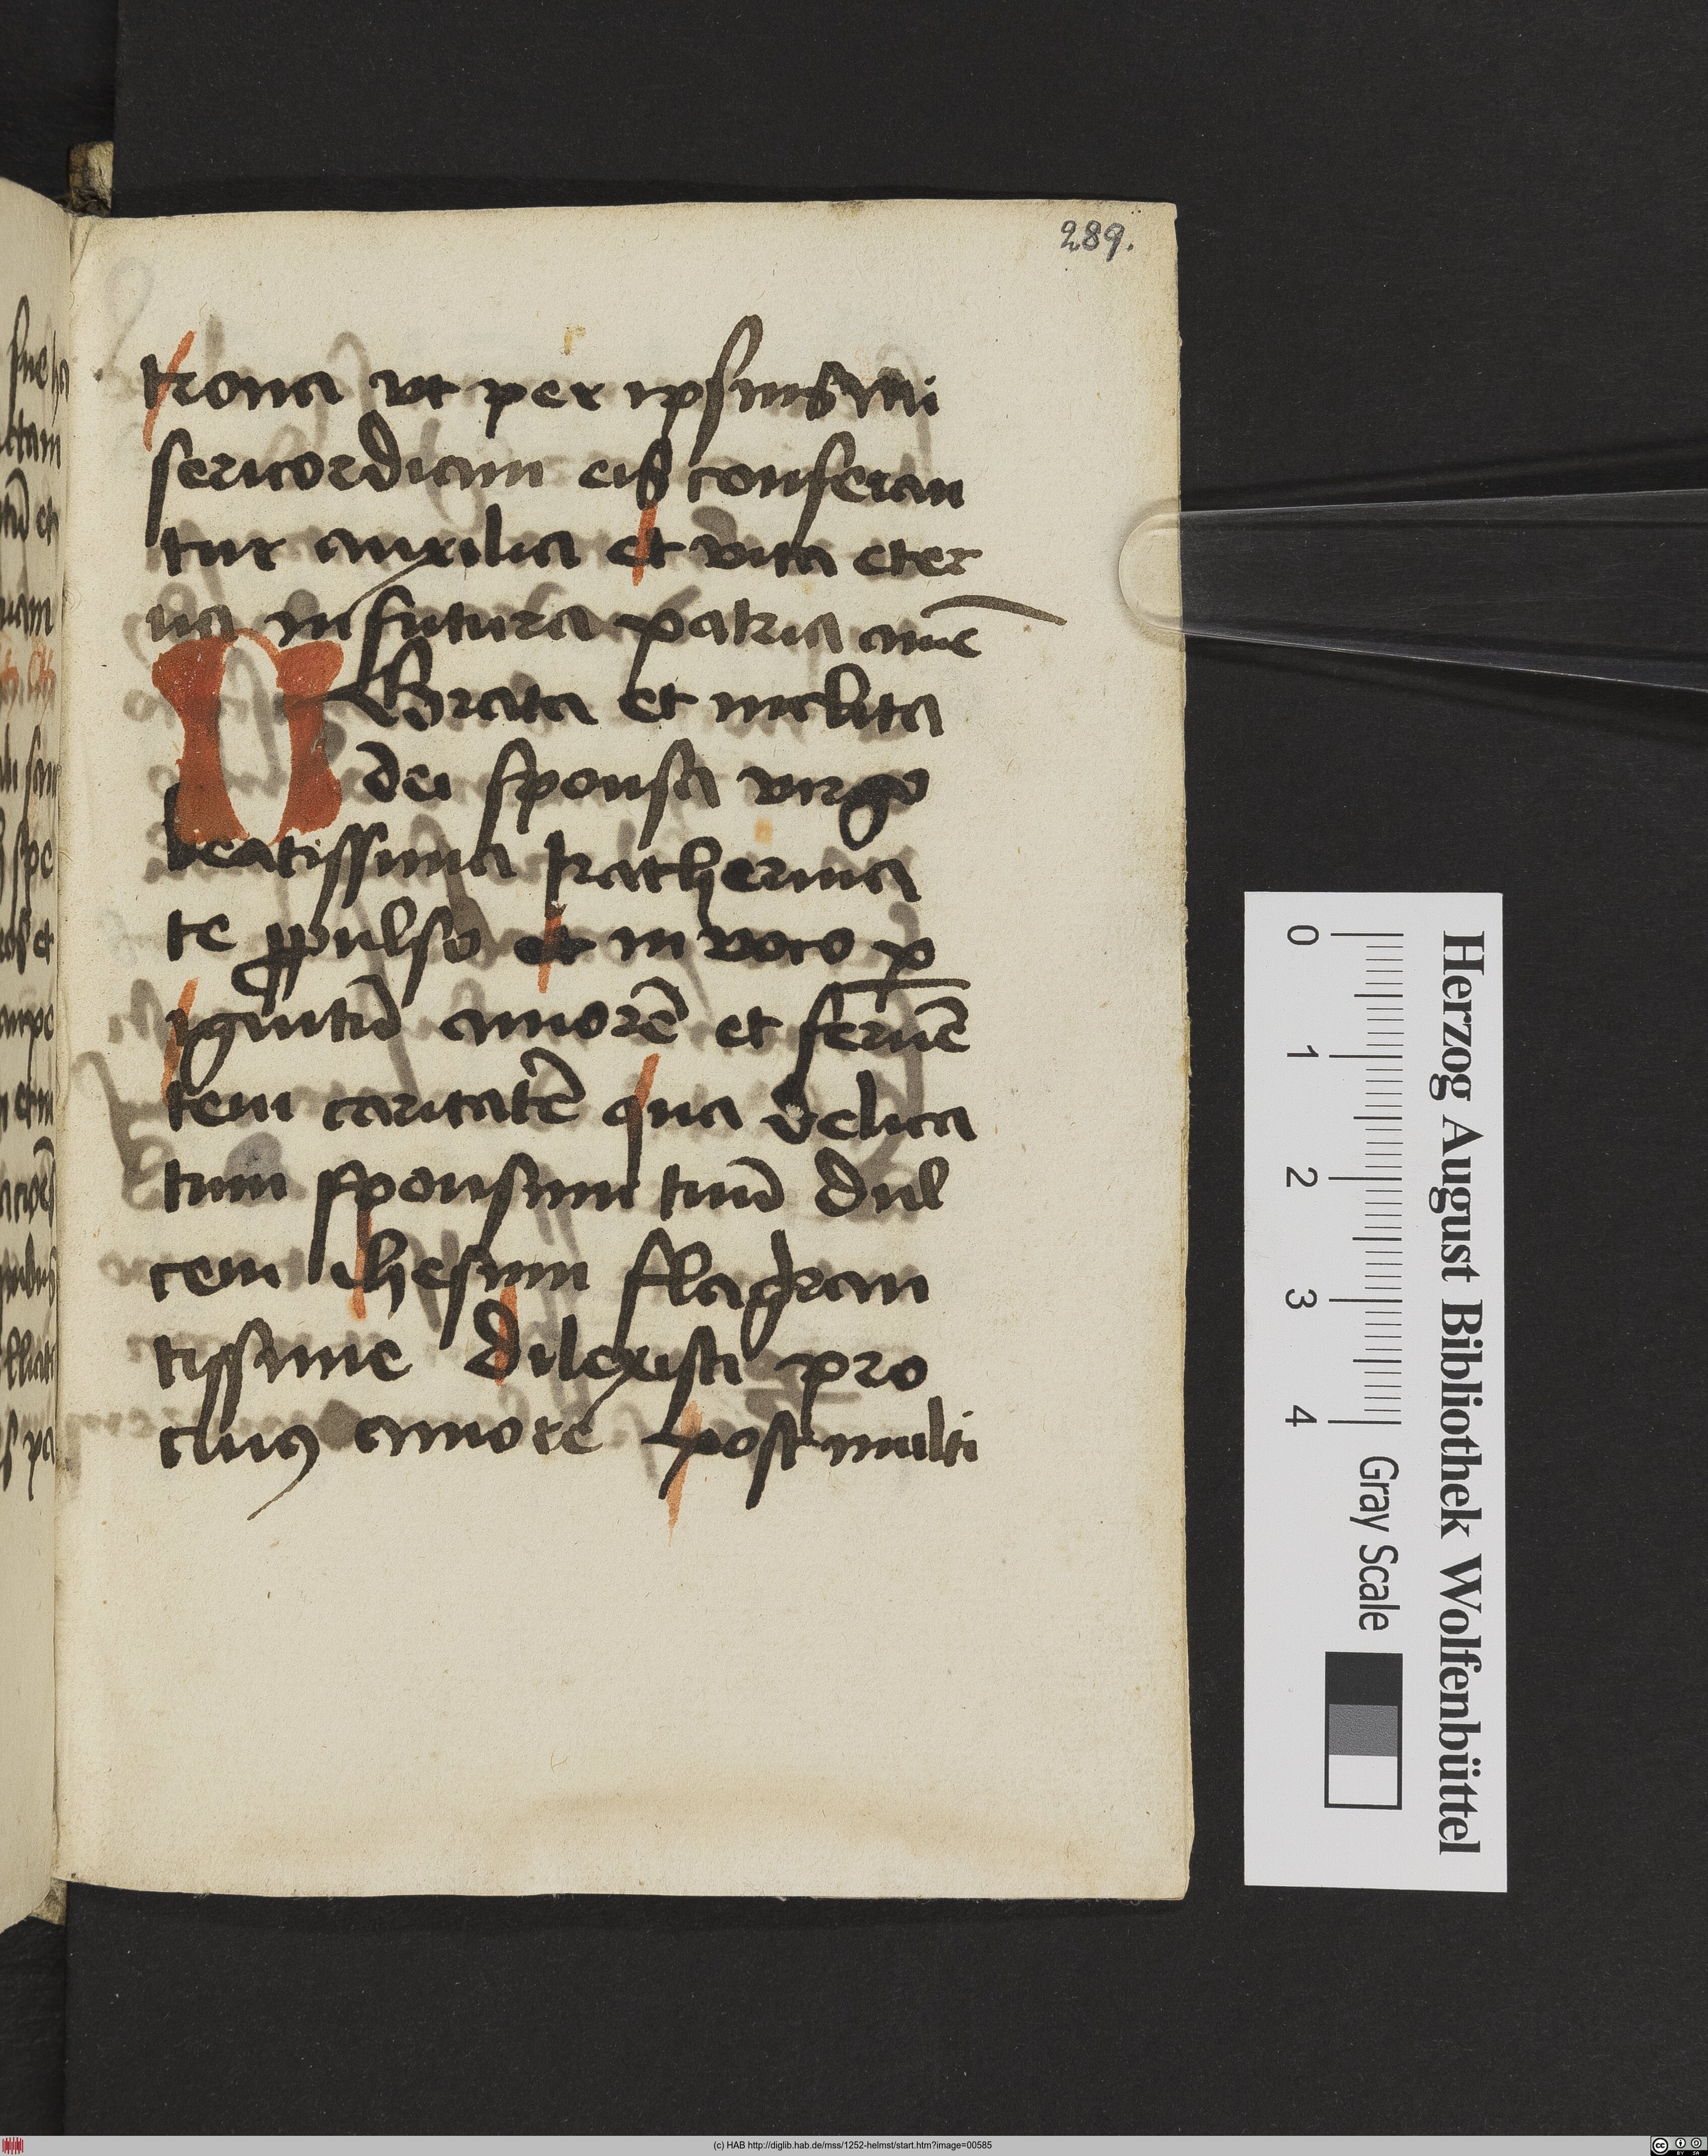 289.
trona vt per ipsius mi
sericordiam eis conferan
tur auxilia et vita eter
na in futura patria amē
O Grata et inclita
dei sponsa virgo
beatissima katherina
te ꝓpulso et in voco ꝑ
ignitū amorē et feruē
tem caritatē qua delica
tum sponsum tuū dul
cem ihesum flagran
tissime dilexisti pro
cuiꝰ amore post multi
Herzog August Bibliothek Wolfenbüttel
0 1 2 3 4 Gray Scale
(c) HAB http://diglib.hab.de/mss/1252-helmst/start.htm?image=00585